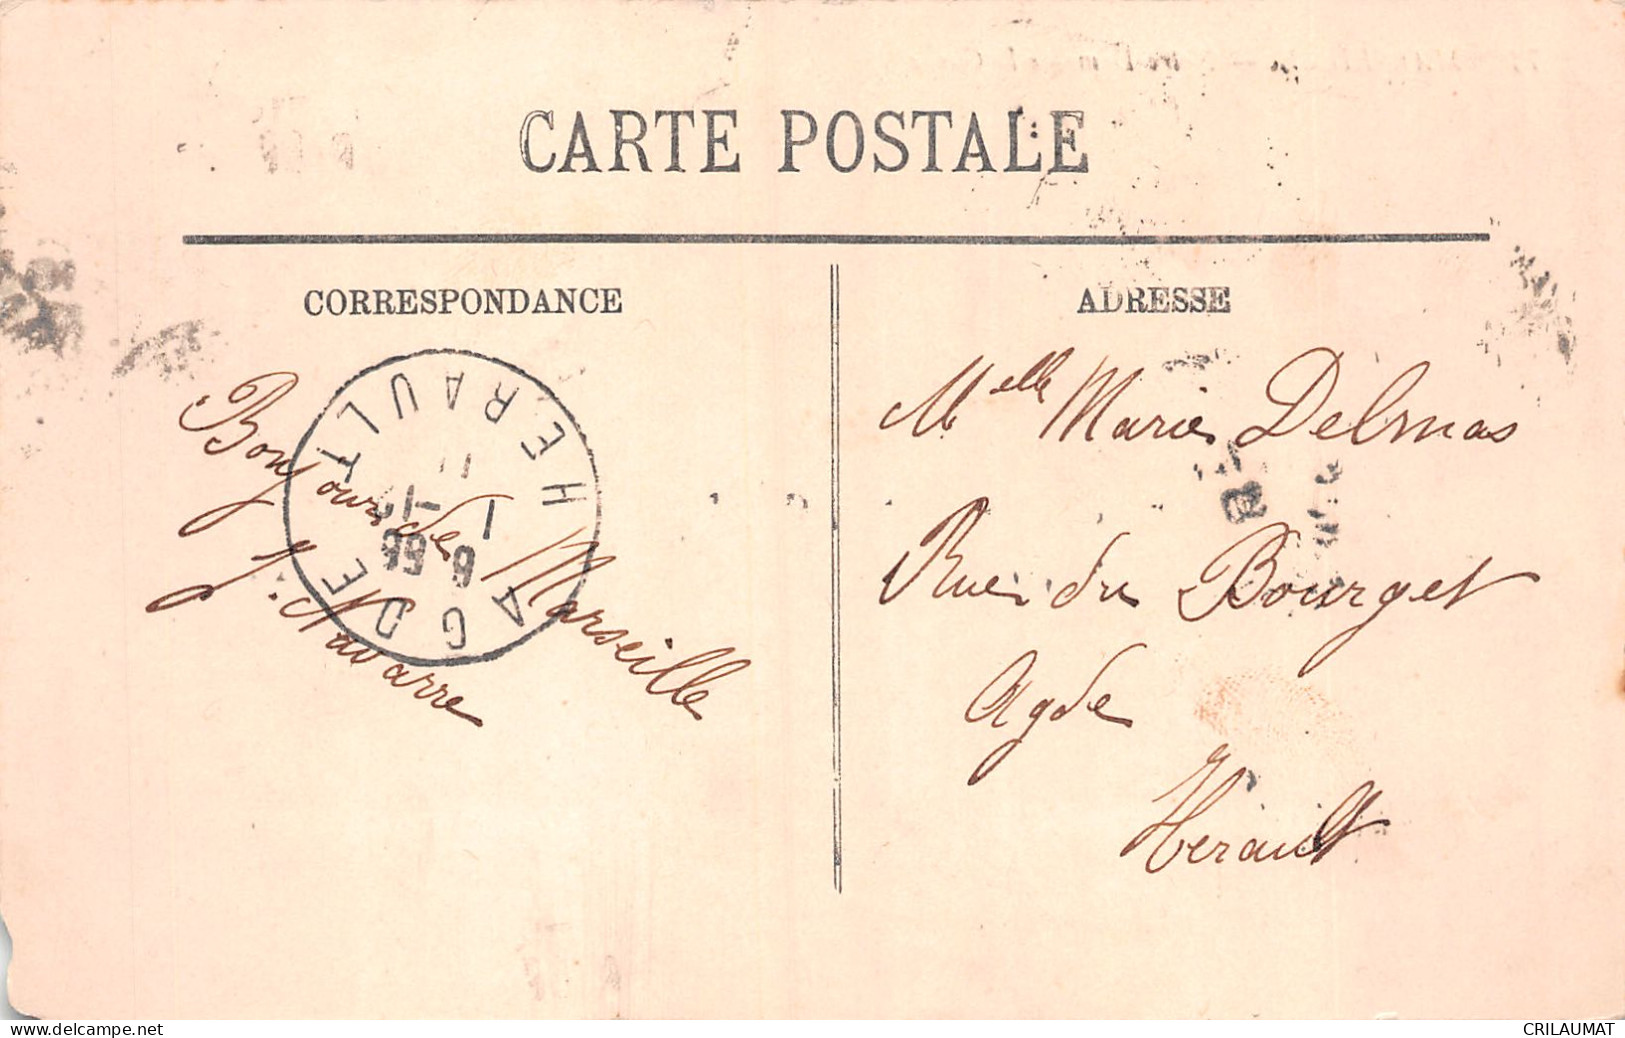 CARTE POSTALE
CORRESPONDANCE
Bonjour de Marseille
J. Navarre
AGDE
HÉRAULT
ADRESSE
Melle Marie Delmas
Rue du Bourget
Agde
Herault
www.delcampe.net
CRILAUMAT